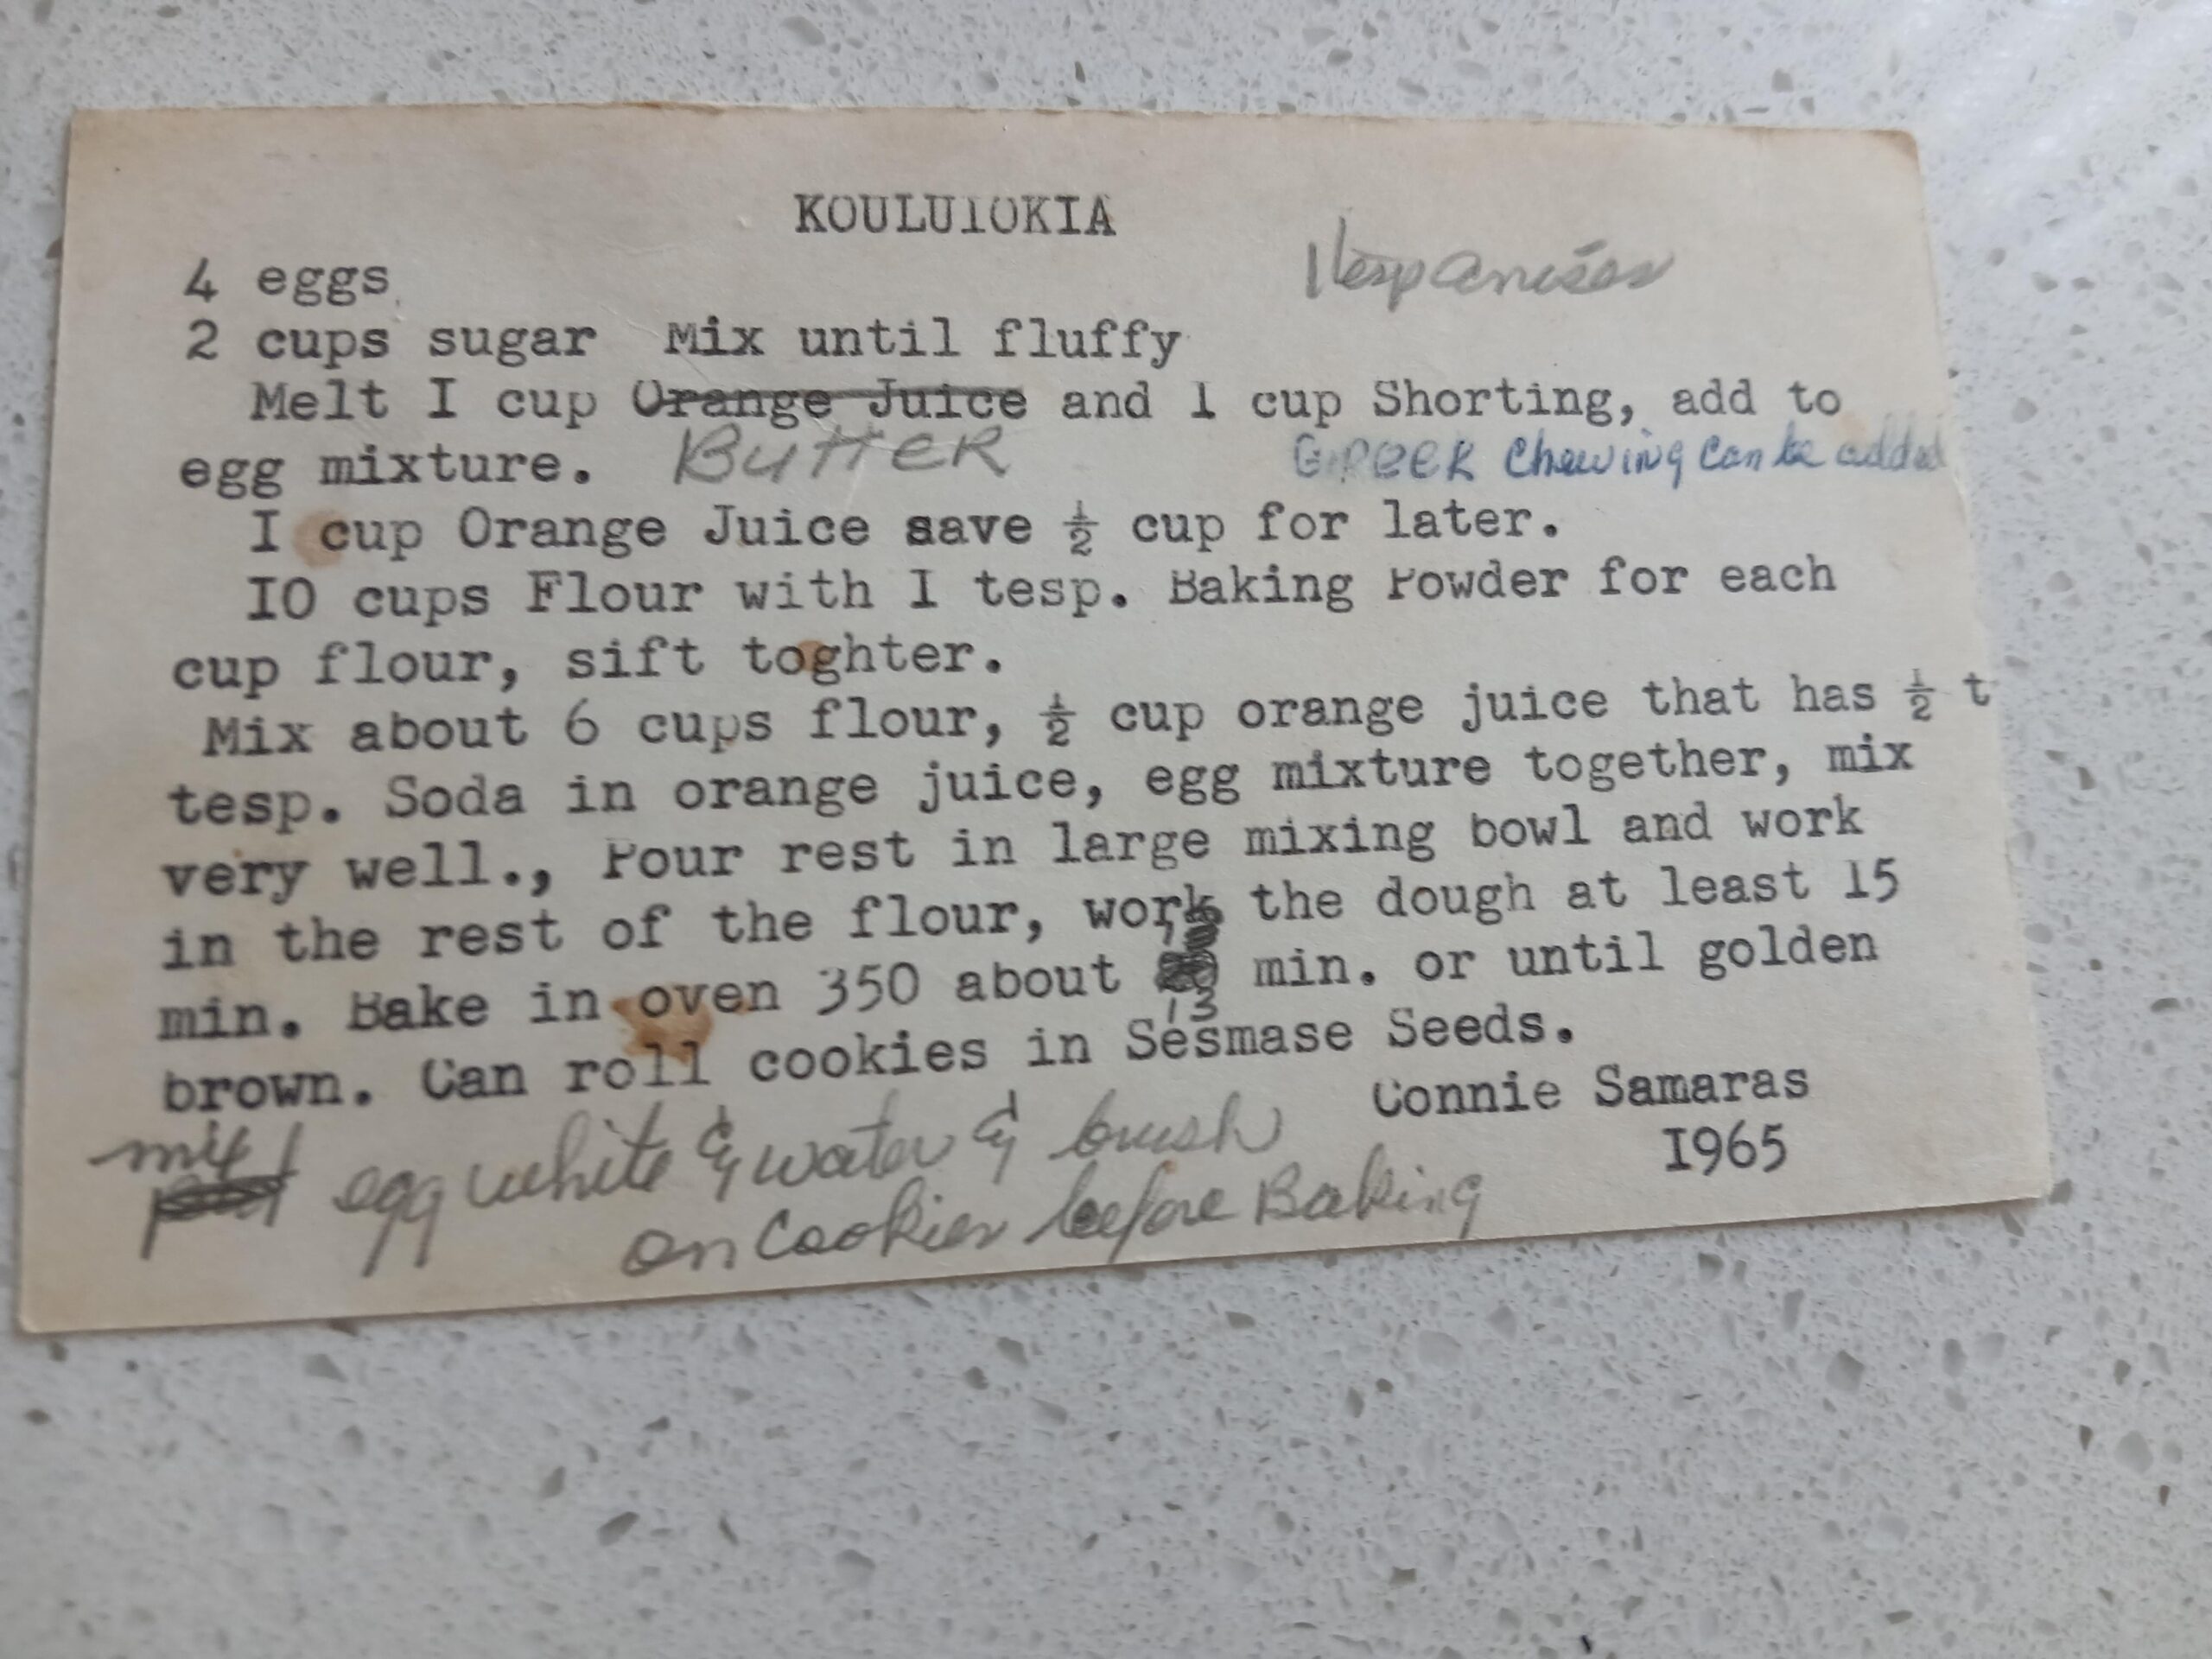 KOULUTOKIA
4 eggs
1 tesp anises
2 cups sugar Mix until fluffy
Melt I cup Orange Juice and 1 cup Shorting, add to
egg mixture. BUTTER GREEK Chewing Can be added
I cup Orange Juice save ½ cup for later.
IO cups Flour with I tesp. Baking Powder for each
cup flour, sift toghter.
Mix about 6 cups flour, ½ cup orange juice that has ½ t
tesp. Soda in orange juice, egg mixture together, mix
very well., Pour rest in large mixing bowl and work
in the rest of the flour, work the dough at least 15
min. Bake in oven 350 about min. or until golden
13
brown. Can roll cookies in Sesmase Seeds.
Connie Samaras
I965
mix egg white & water & brush
on Cookies before Baking